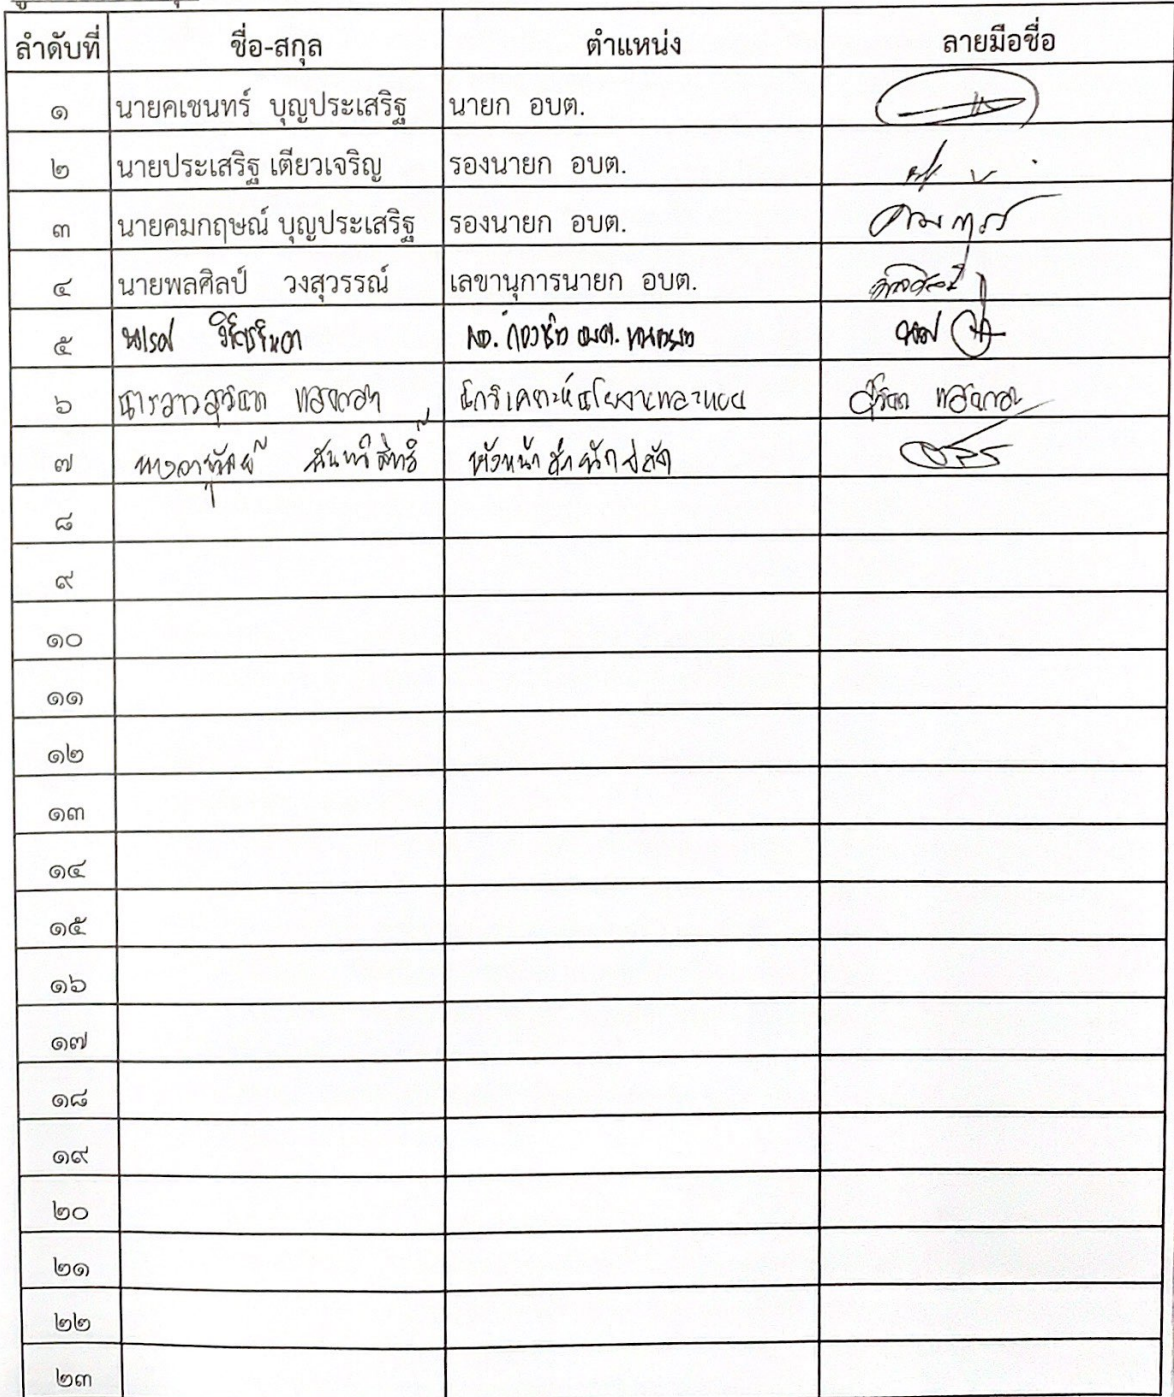 ลำดับที่ ชื่อ-สกุล ตำแหน่ง ลายมือชื่อ
๑ นายคเชนทร์ บุญประเสริฐ นายก อบต.
๒ นายประเสริฐ เตียวเจริญ รองนายก อบต.
๓ นายคมกฤษณ์ บุญประเสริฐ รองนายก อบต.
๔ นายพลศิลป์ วงสุวรรณ์ เลขานุการนายก อบต.
๕ นเรศ ผอ. กองช่าง อบต.
๖ นางสาวสุวิมล นักวิเคราะห์นโยบายและแผน
๗ หัวหน้าสำนักปลัด
๘
๙
๑๐
๑๑
๑๒
๑๓
๑๔
๑๕
๑๖
๑๗
๑๘
๑๙
๒๐
๒๑
๒๒
๒๓